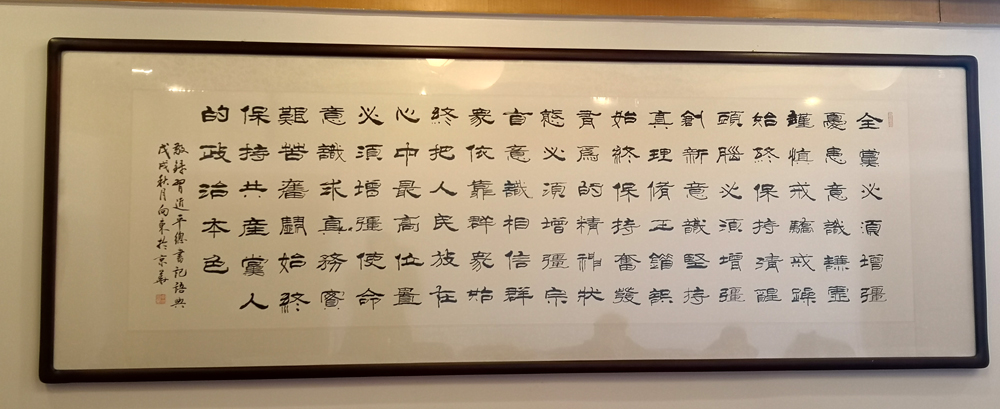 全黨必須增彊
憂患意識謙虛
謹慎戒驕戒躁
始終保持清醒
頭腦必須增彊
創新意識堅持
真理脩正錯誤
始終保持奮發
有爲的精神狀
態必須增彊宗
旨意識相信群
衆依靠群衆始
終把人民放在
心中最高位置
必須增彊使命
意識求真務實
艱苦奮鬭始終
保持共產黨人
的政治本色
敬錄習近平總書記語典
戊戌秋月向東於京華